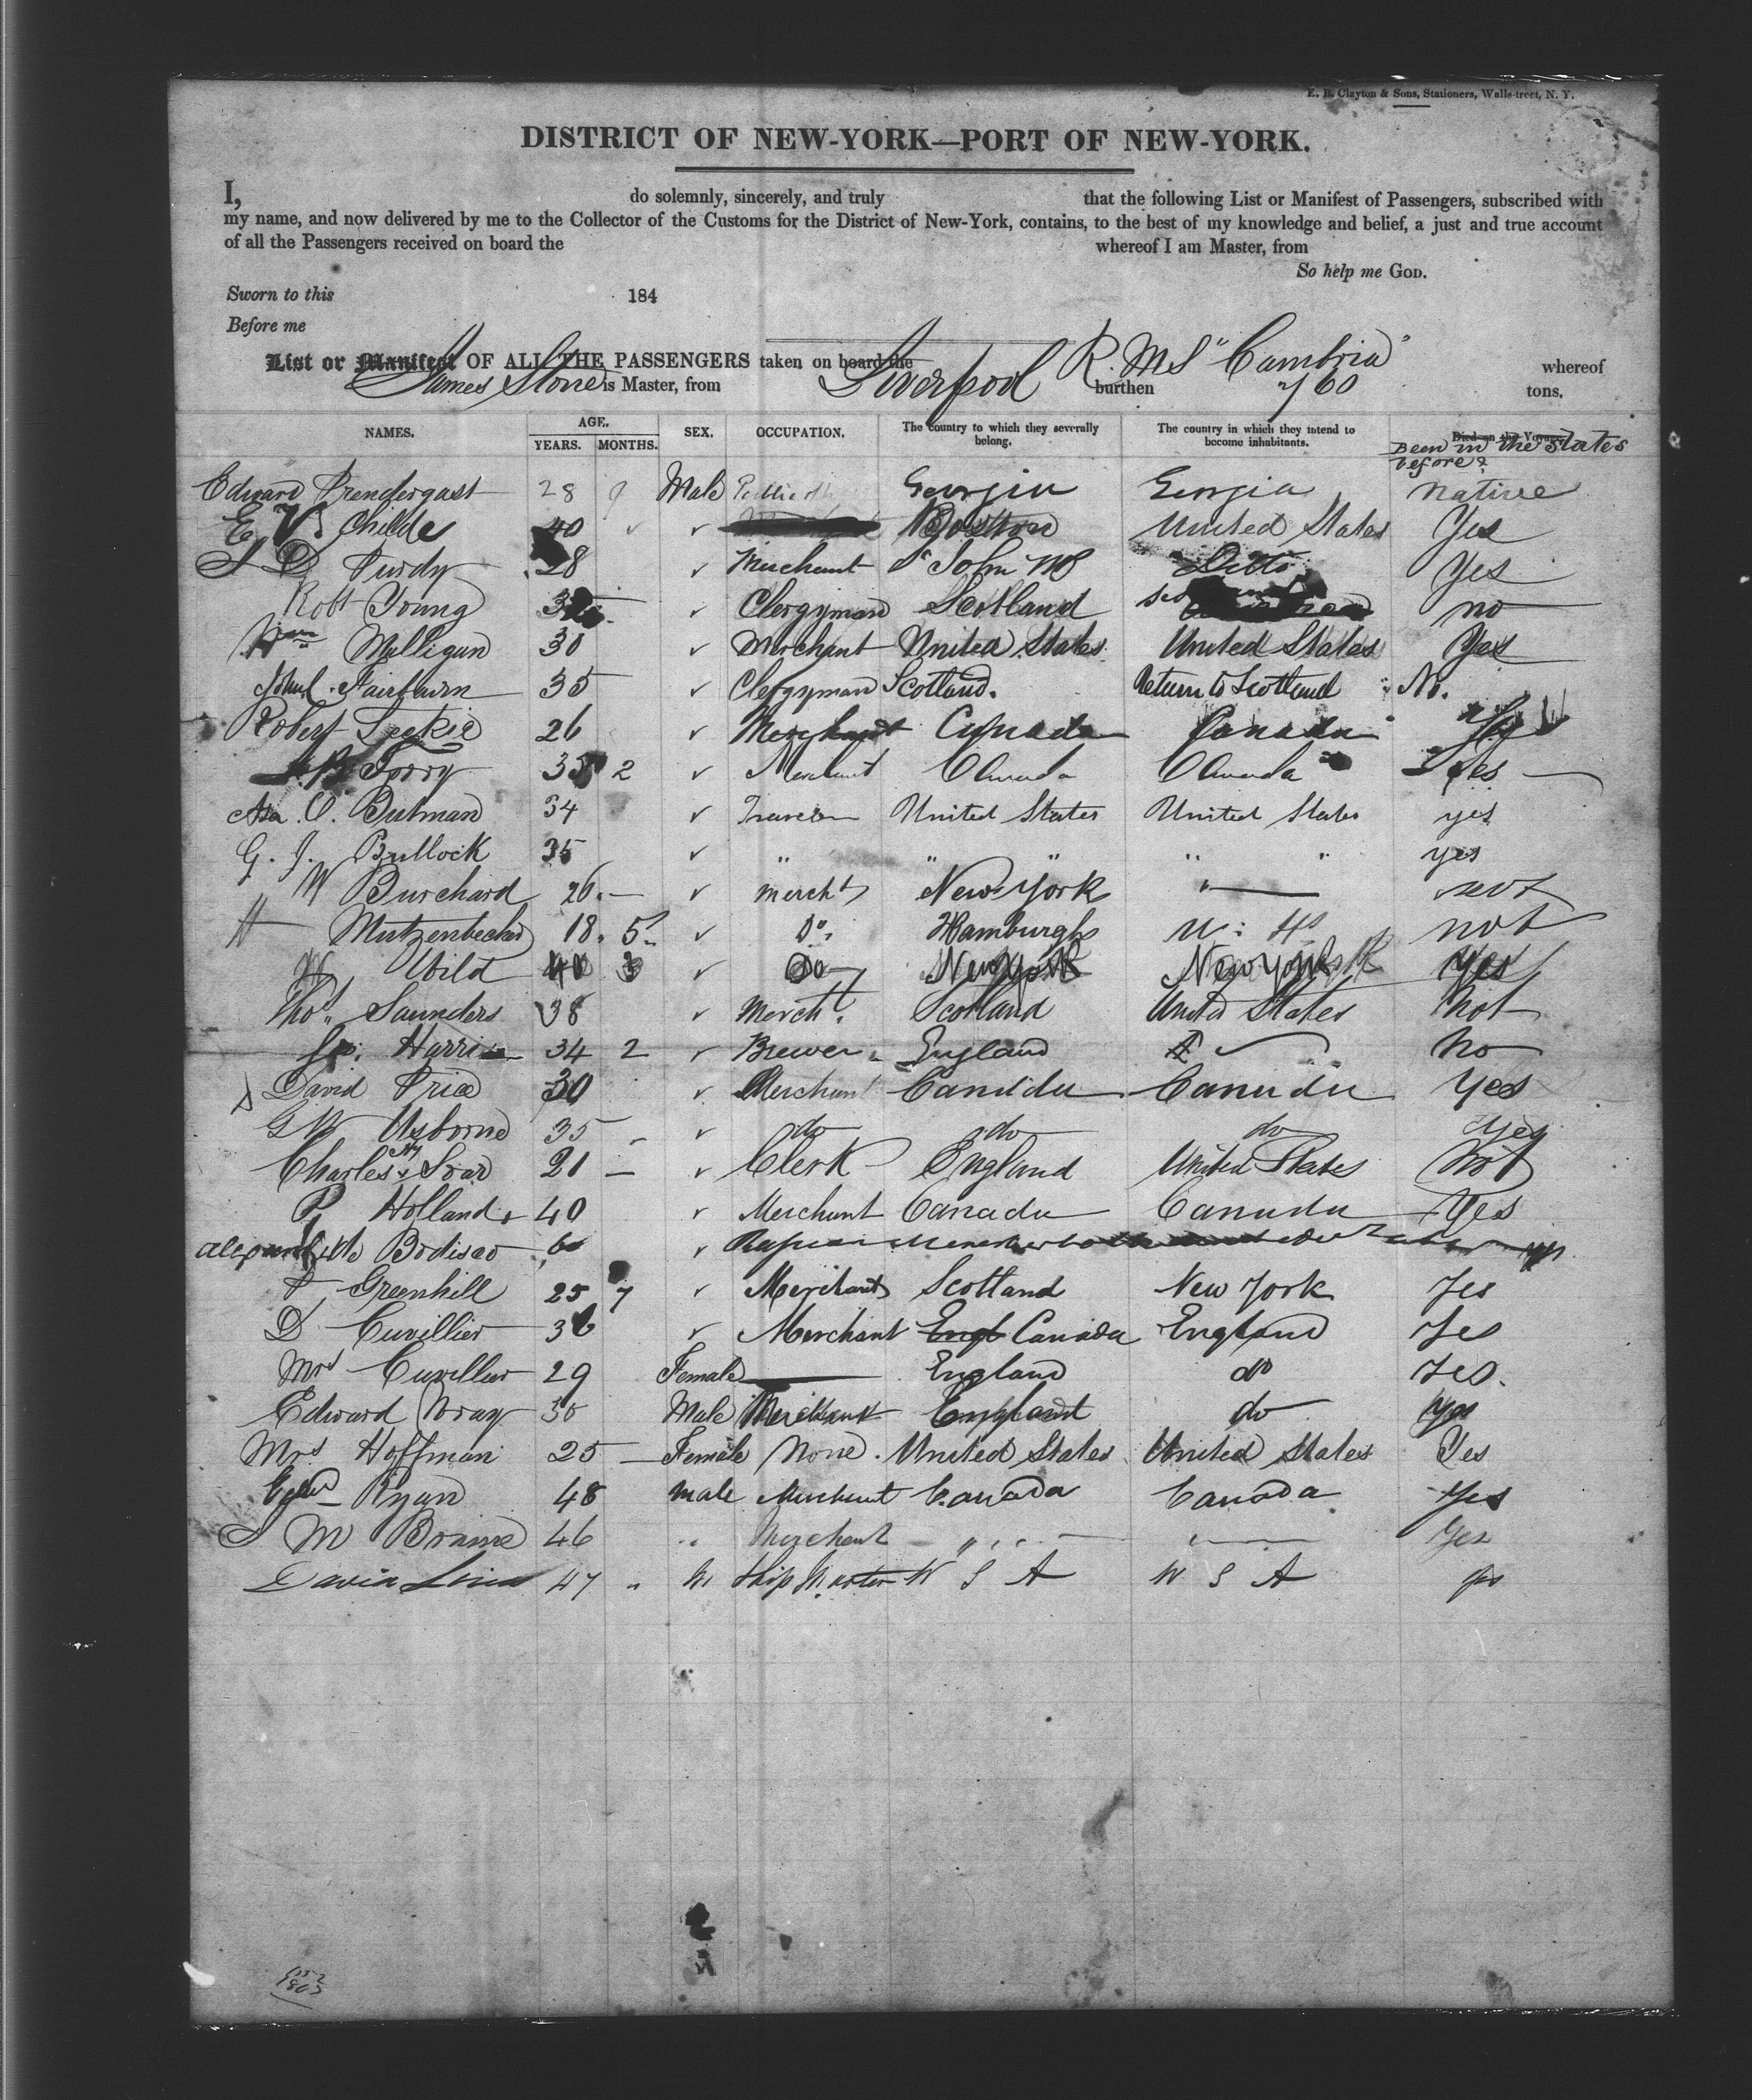 E. B. Clayton & Sons, Stationers, Wall-street, N. Y.
DISTRICT OF NEW-YORK—PORT OF NEW-YORK.
I, do solemnly, sincerely, and truly that the following List or Manifest of Passengers, subscribed with
my name, and now delivered by me to the Collector of the Customs for the District of New-York, contains, to the best of my knowledge and belief, a just and true account
of all the Passengers received on board the whereof I am Master, from
So help me GOD.
Sworn to this 184
Before me
List or Manifest OF ALL THE PASSENGERS taken on board the R.M.S "Cambria" whereof
James Stone is Master, from Liverpool burthen 760 tons.
NAMES. AGE. YEARS. MONTHS. SEX. OCCUPATION. The country to which they severally belong. The country in which they intend to become inhabitants. Died on the Voyage.
Been in the States before?
Edward Prendergast 28 9 Male Georgia Georgia native
E V Childe 40 Boston United States Yes
J D Purdy 28 Merchant St John NB Ditto Yes
Robt Young Clergyman Scotland no
Wm Milligan 30 Merchant United States United States Yes
John Fairbairn 35 Clergyman Scotland. Return to Scotland No.
Robert Leckie 26 Merchant Canada Canada Yes
Torry 35 2 Merchant Canada Canada Yes
Asa O. Butman 34 United States United States yes
G. J. Bullock 35 " " " " " yes
W Burchard 26. — mercht New York " not
H Mutzenbecher 18. 5. Do. Hamburgh not
W Wild 40 3 Do New York New York Yes
Thos. Saunders 38 Mercht. Scotland United States Not
34 2 Brewer England No
David Price 30 Merchant Canada Canada Yes
G W Usborne 35 do do do Yes
Charles Soar 21 — Clerk England United States Not
P Holland 40 Merchant Canada Canada Yes
de Bodisco
Greenhill 25 7 Merchant Scotland New York Yes
D Cuvillier 36 Merchant Engl Canada England Yes
Mrs Cuvillier 29 Female England do Yes.
Edward Wray 30 Male Merchant England do Yes
Mrs Hoffman 25 — Female None. United States United States Yes
Edwd Ryan 48 male Merchant Canada Canada Yes
46 " Merchant " Yes
David 47 " M Ship Master U S A U S A yes